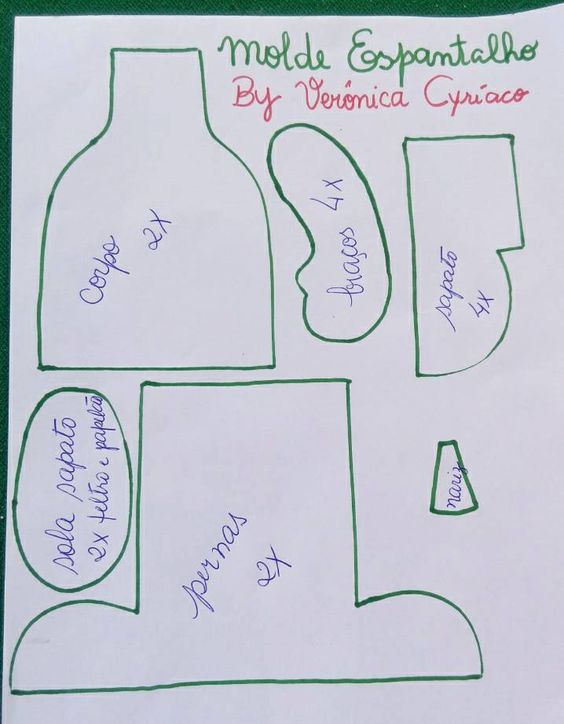 Molde Espantalho
By Verônica Cyríaco
corpo
2x
braços 4x
sapato
4x
sola sapato
2x feltro e papelão
pernas
2x
nariz